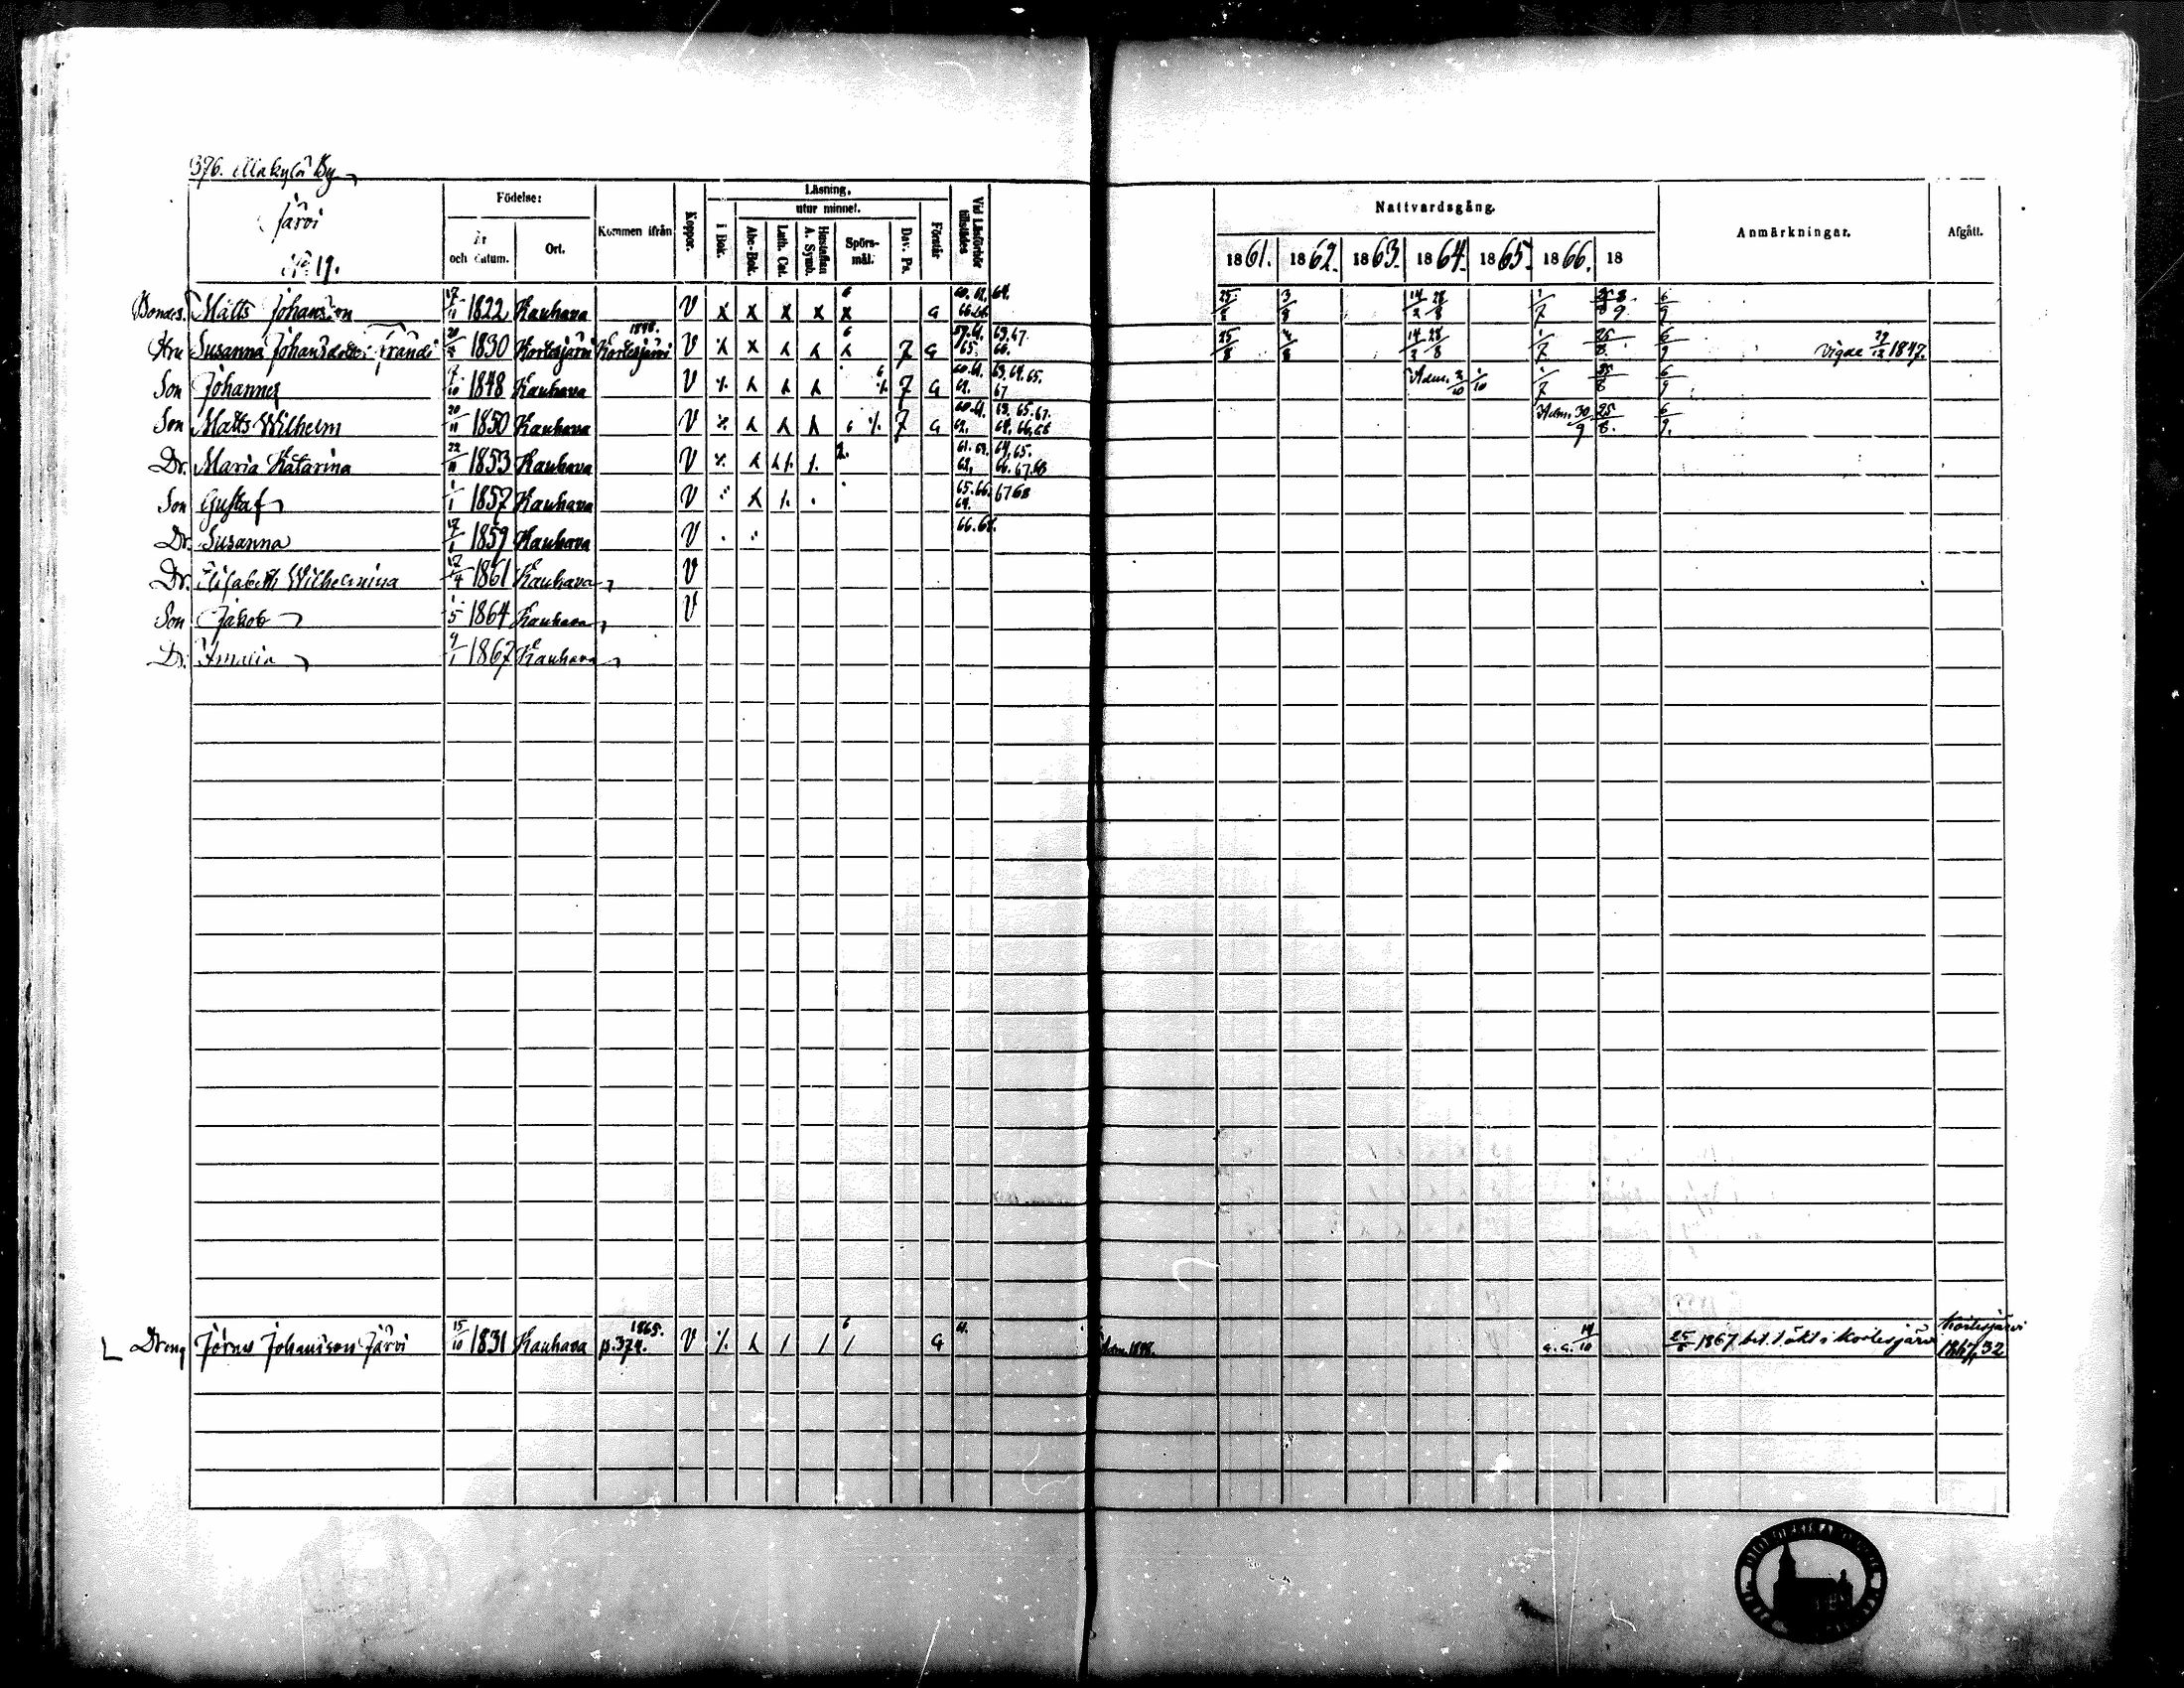 376. Makylä By
Järvi
No 19.
Födelse:
År och datum.
Ort.
Kommen ifrån
Koppor.
Läsning.
i Bok.
utur minnet.
Abc-Bok.
Luth. Cat.
Hustaflan A. Symb.
Spörsmål.
Dav. Ps.
Förstår
Vid Läsförhör tillstädes
Nattvardsgång.
1861. 1862. 1863. 1864. 1865. 1866. 18
Anmärkningar.
Afgått.
Bondes. Matts Johansson 17/11 1822 Kauhava V x x x x x 6 a 64. 25/8 3/8 14/2 28/8 1/7 6/9
Hru Susanna Johansdotter 20/2 1830 Kortesjärvi 1848. Kortesjärvi V 6 7 a 25/8 4/8 14/2 28/8 1/7 25/8. 6/9 Vigde 27/12 1847.
Son Johannes 7/10 1848 Kauhava V 6 7 a 60.61. 63.64.65. 62. 67 Adm. 2/10 1/10 1/7 25/8 6/9
Son Matts Wilhelm 20/11 1850 Kauhava V 6 7 a 60.61. 63. 65. 67. 62. 64. 66. 68 Adm. 30/9 25/8. 6/9.
Dr. Maria Katarina 22/11 1853 Kauhava V 2. 61. 63. 64. 65. 62. 66. 67. 68
Son Gustaf 1/1 1857 Kauhava V 65. 66. 67 68 64.
Dr. Susanna 17/1 1859 Kauhava V 66. 68.
Dr. Elisabeth Wilhelmina 17/4 1861 Kauhava V
Son Jakob 1/5 1864 Kauhava V
Dr. Amalia 9/1 1867 Kauhava
Dreng Johansson Järvi 15/10 1831 Kauhava 1865. p. 374. V 6 a 61. Adm. 1848. a. a. 14/10 25/8 1867 bet. t. äkt. i Kortesjärvi Kortesjärvi 1867/32